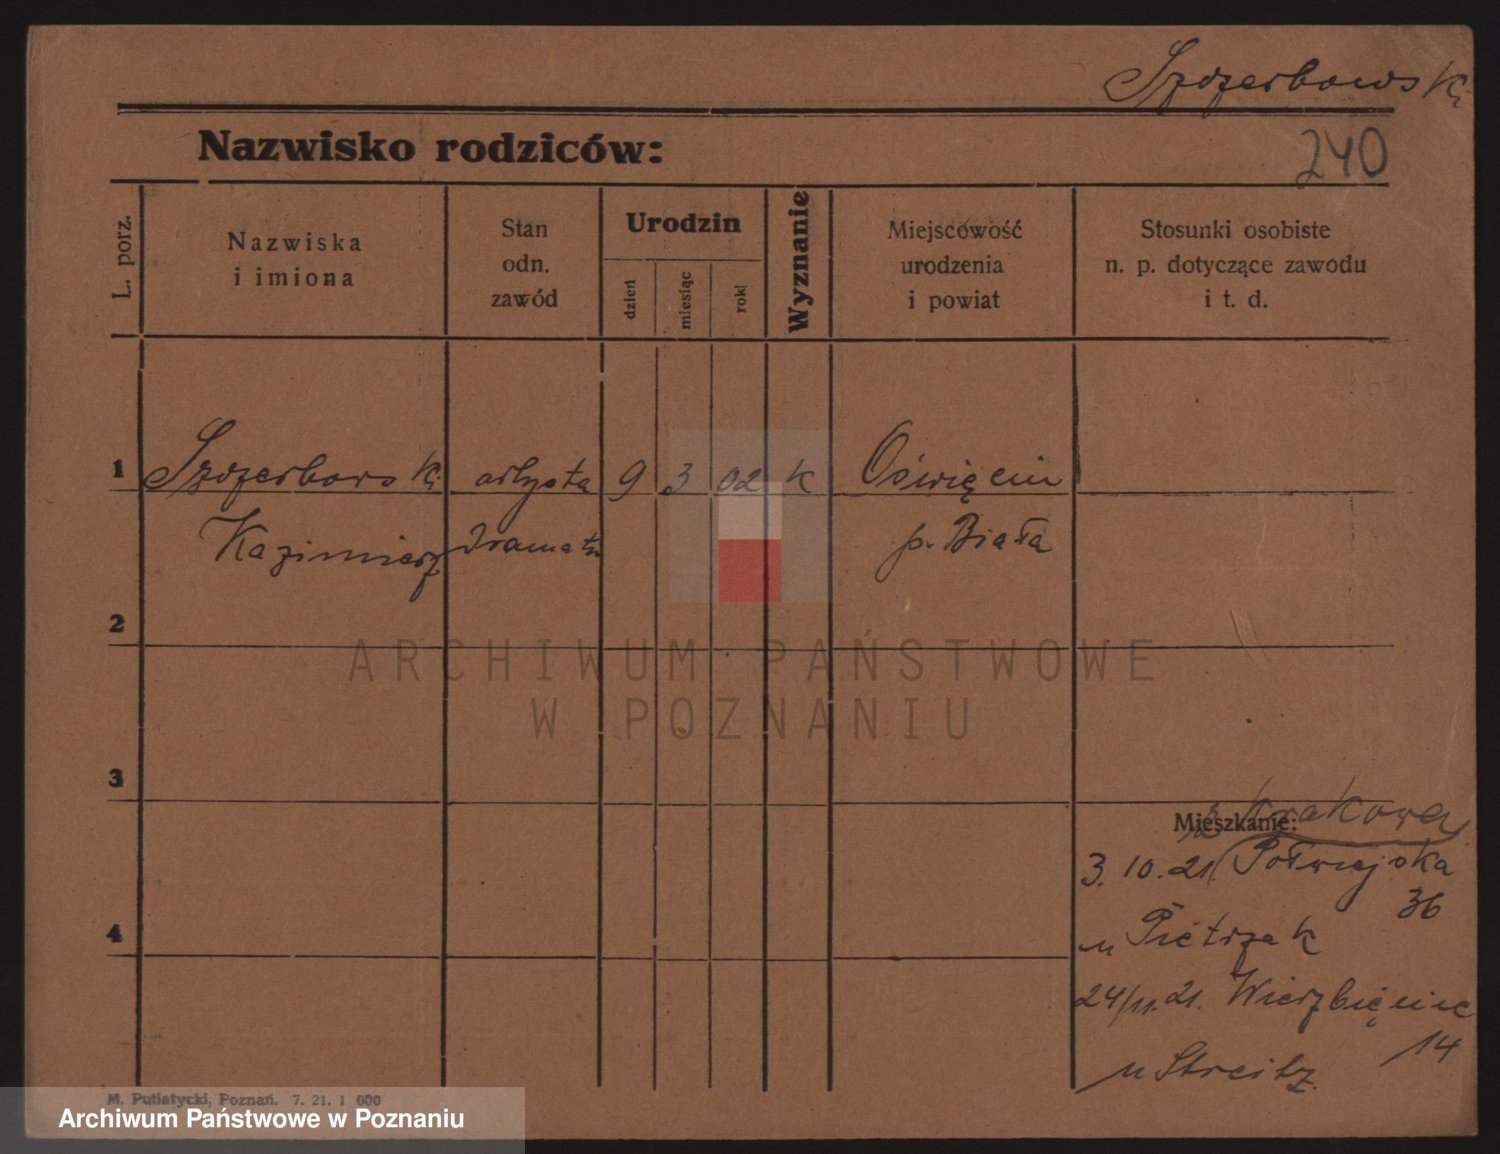 Szczerbowski
Nazwisko rodziców:
240
L. porz.
Nazwiska
i imiona
Stan
odn.
zawód
Urodzin
dzień
miesiąc
rok
Wyznanie
Miejscowość
urodzenia
i powiat
Stosunki osobiste
n. p. dotyczące zawodu
i t. d.
1 Szczerbowski artysta 9 3 02 k Oświęcim
Kazimierz dramat. p. Biała
2
ARCHIWUM PAŃSTWOWE
W POZNANIU
3
z Krakowa
Mieszkanie:
3. 10. 21. Półwiejska
36
4
u Pietrzak
24/11. 21. Wierzbięcice
14
u Streitz
M. Putiatycki, Poznań. 7. 21. 1 000
Archiwum Państwowe w Poznaniu